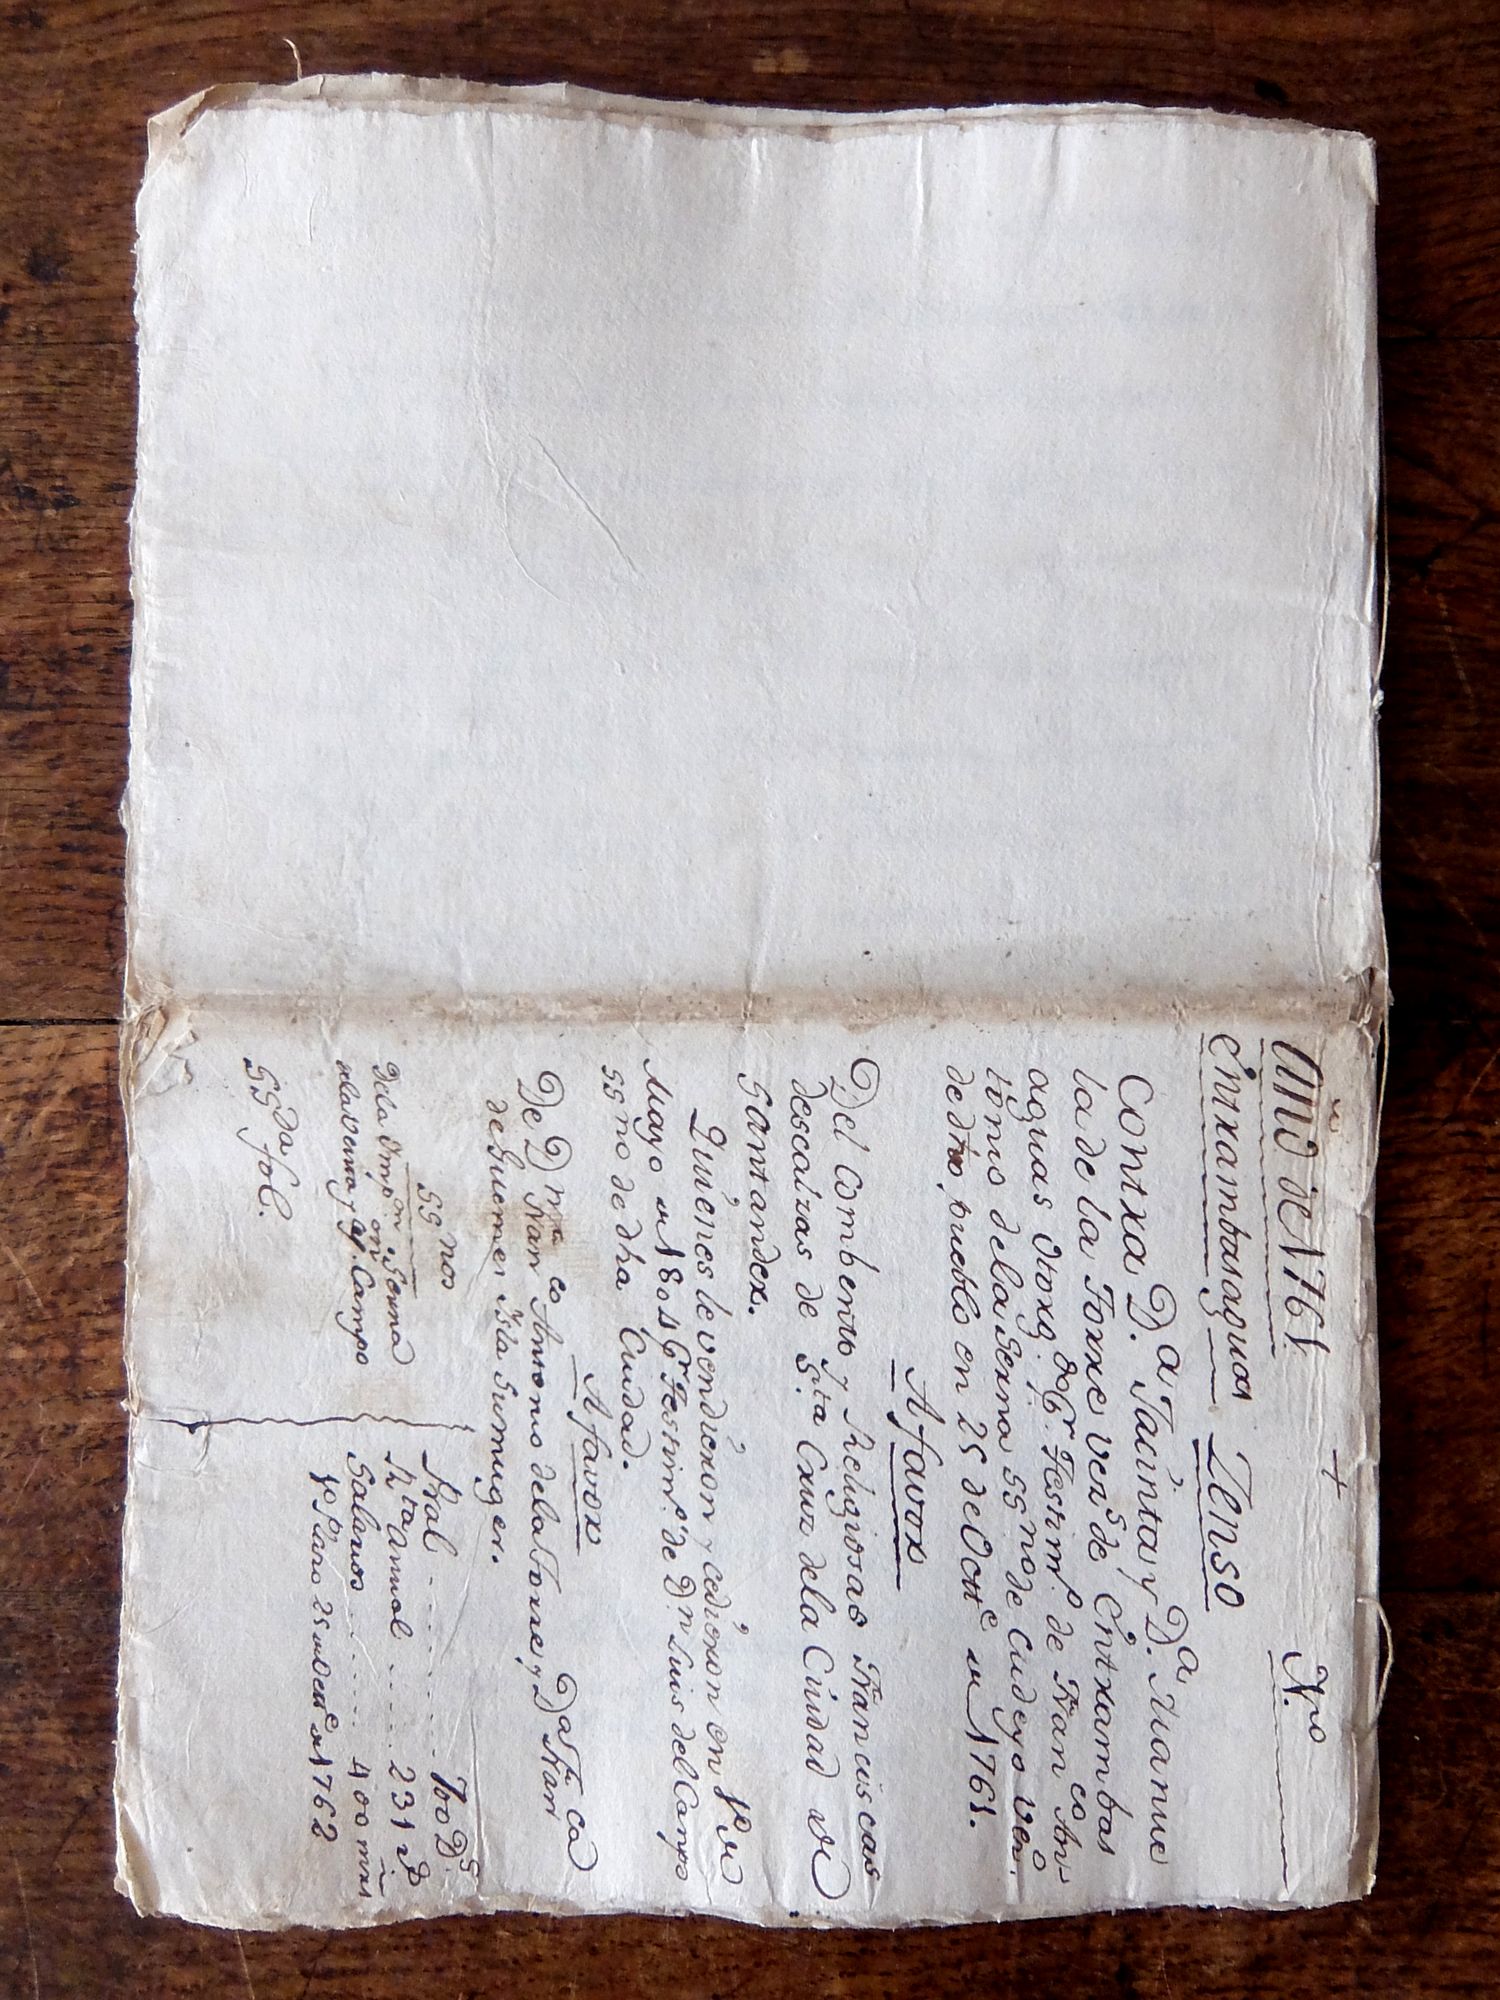 +
Año de 1761.
Nro
Entrambasaguas
Zenso
Contra D.a Jacinta y D.a Mamue
la de la Torre vezs de Entrambas
aguas otorg. do pr. Testimo de Franco An
tonio de la Serna SSno de Cudeyo vezo.
de dho, pueblo en 25 de Octte de 1761.
A favor
Del Combento y Religiosas Franciscas
descalzas de Sta Cruz de la Ciudad de
Santander.
Quienes le vendieron y cedieron en po de
Mayo de 1804 pr Testimo. de Dn Luis del Campo
SSno de dha Ciudad.
A favor
De Dn Franco Antonio de la Torre, y Da Franca
de Guemes Ysla su muger.
SSnos
De la Impon. on Serna
de la venta y Campo
SSda fol.
Pral ........ 700 Ds
Rta Anual .... 231 rs
Salarios ...... 400 mrs
po Paro 25 de Octe de 1762